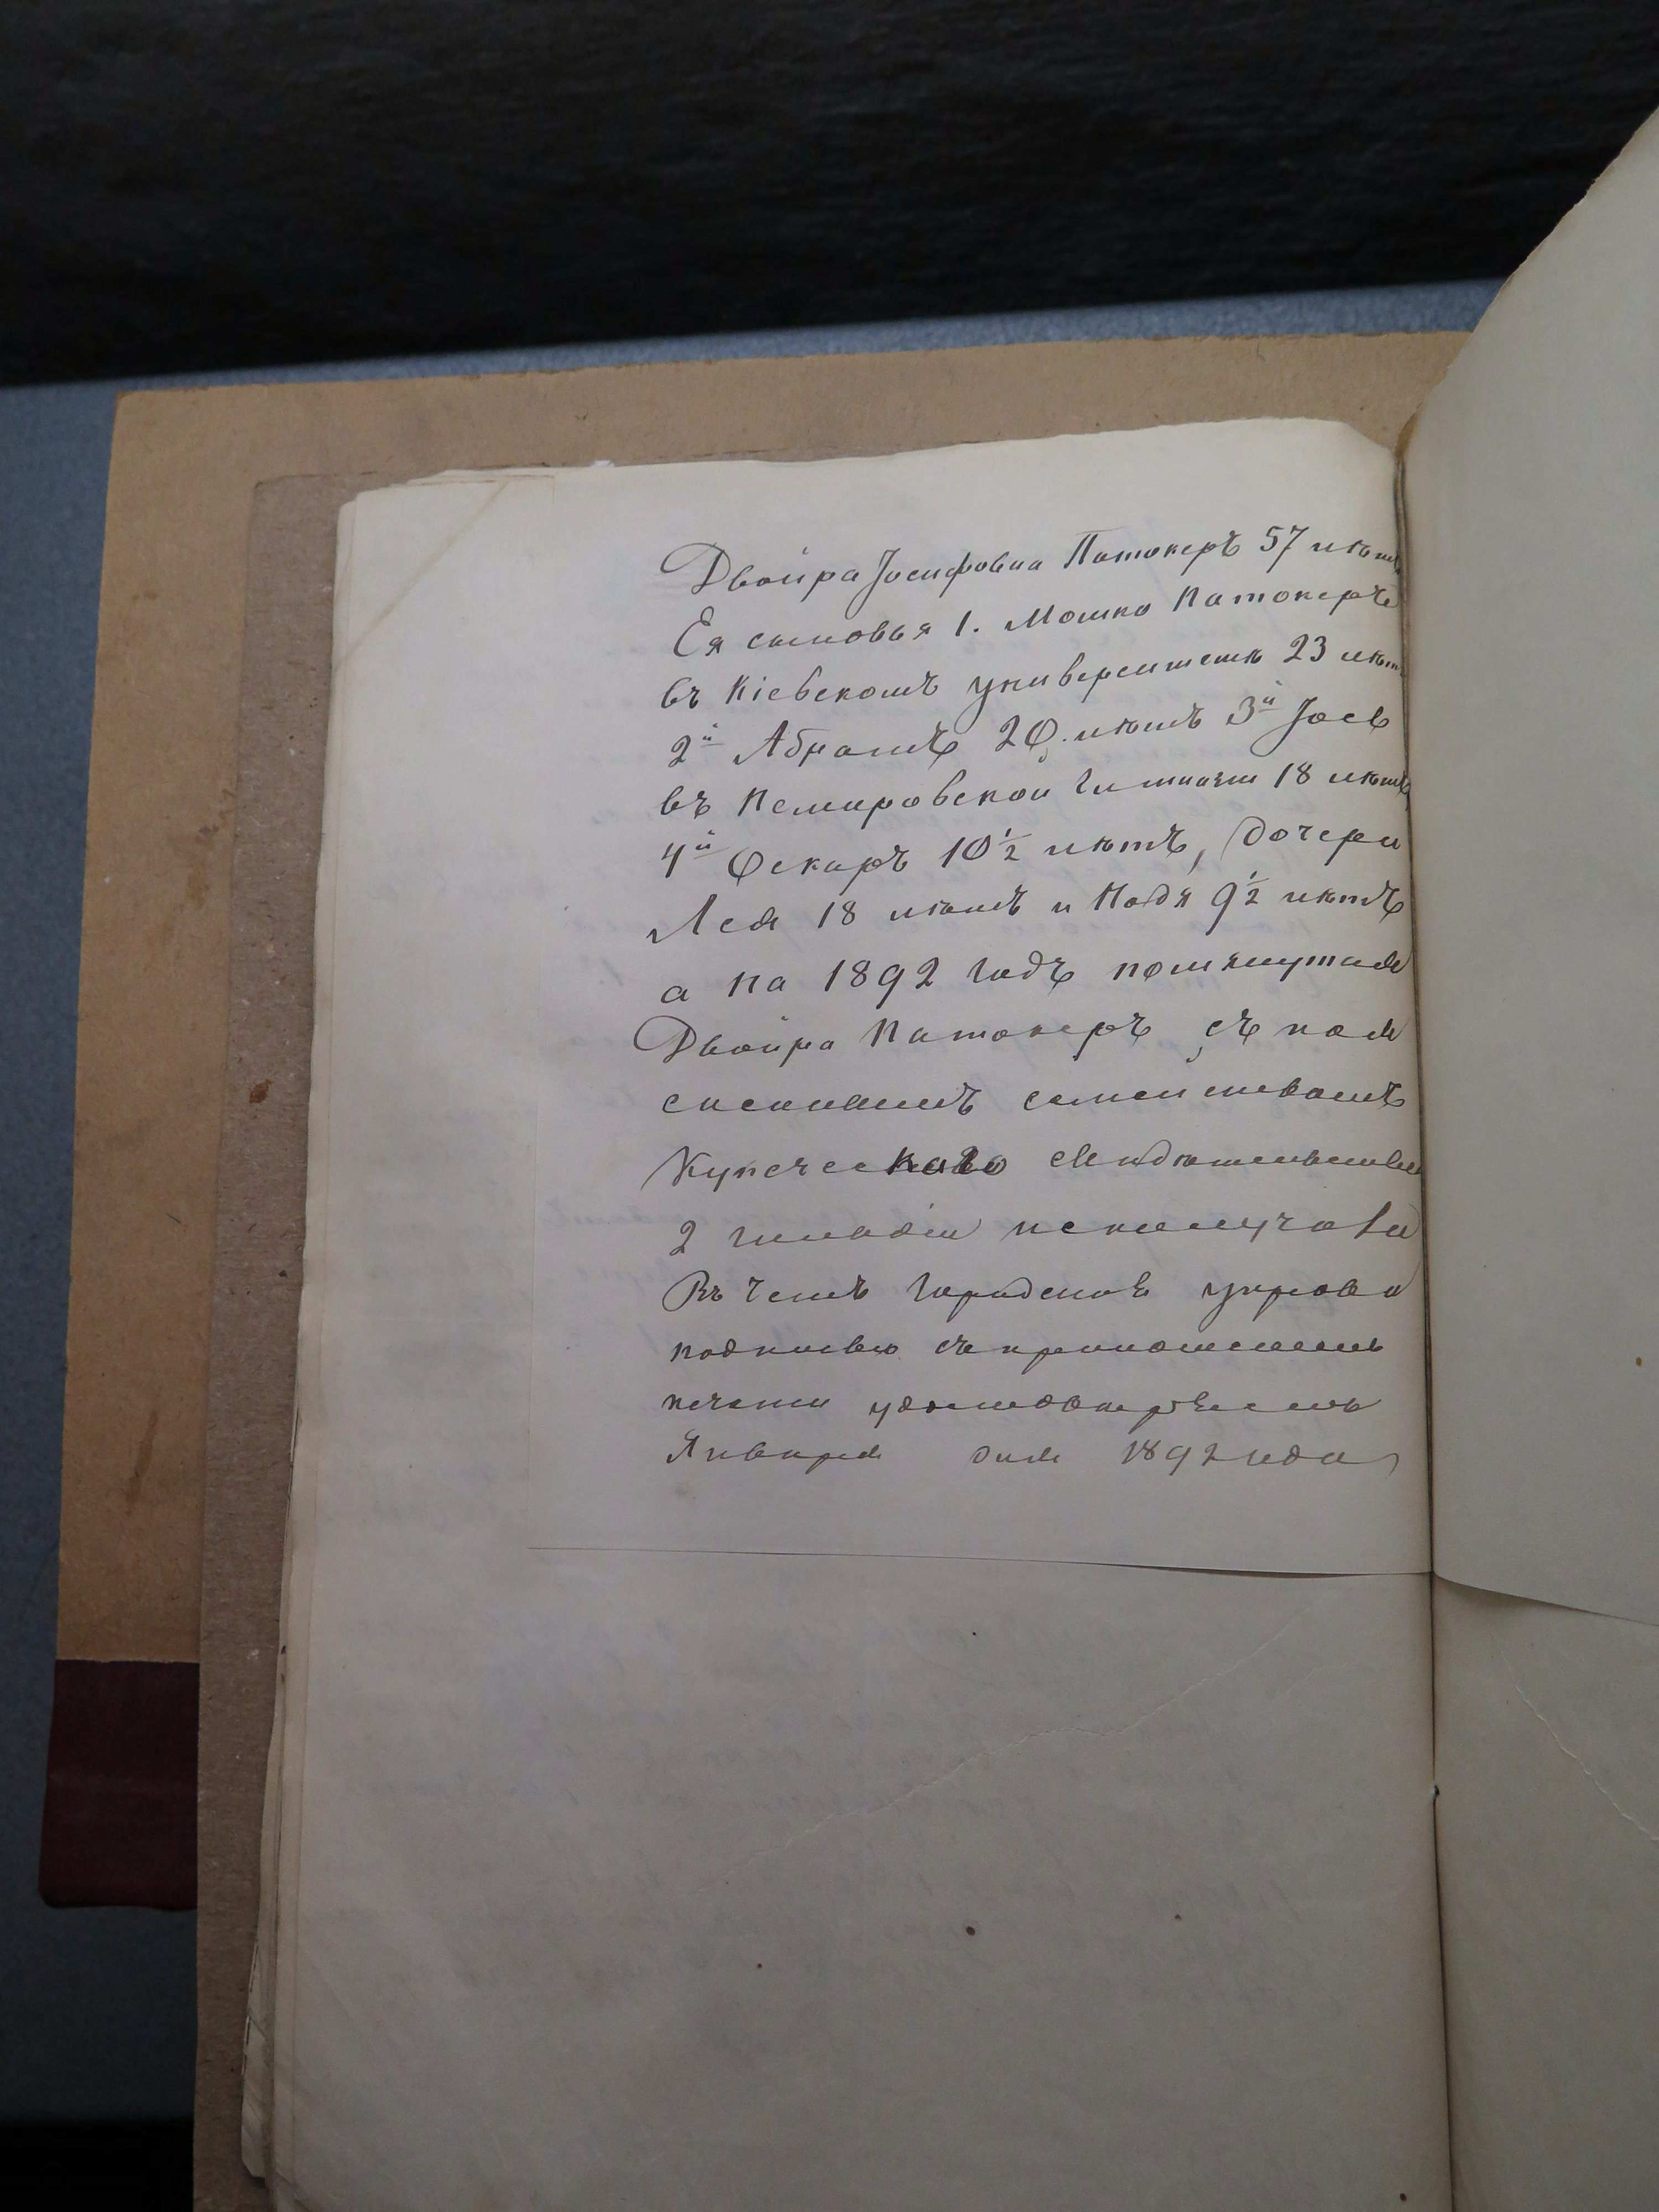 Двойра Іосифовна Патокеръ 57 лѣтъ
Ея сыновья 1. Мошко Патокеръ
въ Кіевскомъ университетѣ 23 лѣтъ
2й Абрамъ 20 лѣтъ 3й Іось
въ Немировской Гимназіи 18 лѣтъ
4й Оскаръ 10½ лѣтъ, дочери
Лея 18 лѣтъ и Надя 9½ лѣтъ
а на 1892 годъ помянутая
Двойра Патокеръ съ поя
сненнымъ семействомъ
Купеческаго свидѣтельства
2 гильдіи неполучала
Въ чемъ Городская управа
подписью съ приложеніемъ
печати удостовѣряетъ
Января дня 1892 года